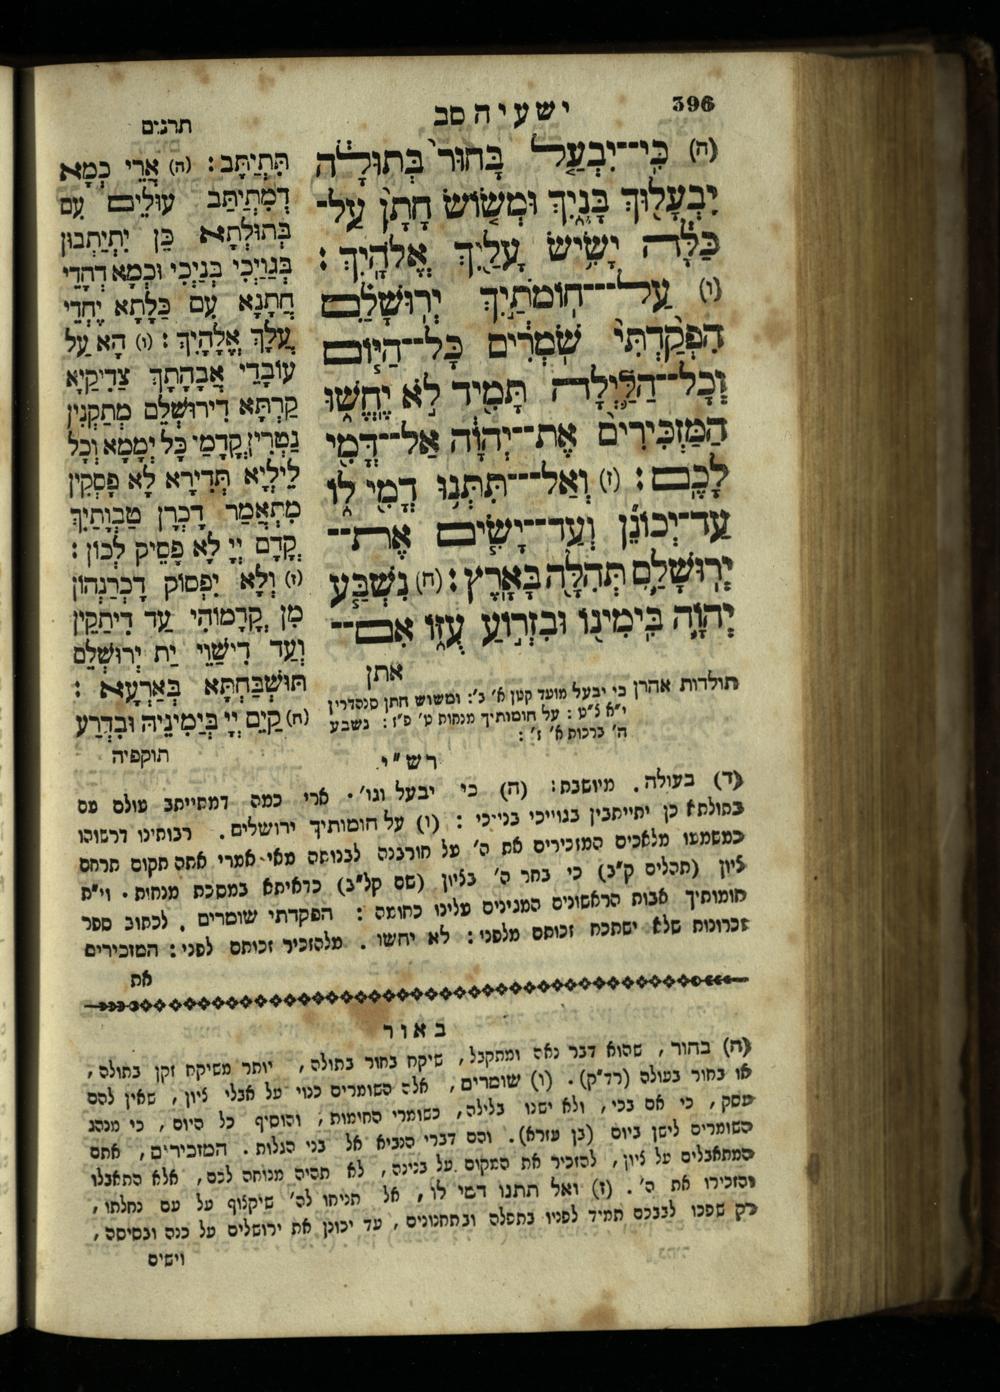 396
ישעיה סב
תרגום
(ה) כִּי־יִבְעַל בָּחוּר בְּתוּלָה
יִבְעָלוּךְ בָּנָיִךְ וּמְשׂוֹשׂ חָתָן עַל־
כַּלָּה יָשִׂישׂ עָלַיִךְ אֱלֹהָיִךְ :
(ו) עַל־חוֹמֹתַיִךְ יְרוּשָׁלִַם
הִפְקַדְתִּי שֹׁמְרִים כָּל־הַיּוֹם
וְכָל־הַלַּיְלָה תָּמִיד לֹא יֶחֱשׁוּ
הַמַּזְכִּירִים אֶת־יְהוָֹה אַל־דֳּמִי
לָכֶם : (ז) וְאַל־תִּתְּנוּ דֳמִי לוֹ
עַד־יְכוֹנֵן וְעַד־יָשִׂים אֶת־
יְרוּשָׁלִַם תְּהִלָּה בָּאָרֶץ : (ח) נִשְׁבַּע
יְהוָֹה בִּימִינוֹ וּבִזְרוֹעַ עֻזּוֹ אִם־
אתן
תולדות אהרן כי יבעל מועד קטן א' ג': ומשוש חתן סנהדרין
י"א צ"ט : על חומותיך מנחות ט' פ"ז : נשבע
ה' ברכות א' ז' :
תִּתְיַתָּב : (ה) אֲרֵי כְמָא
דְמִתְיַתַּב עוּלֵים עִם
בְּתוּלְתָא כֵּן יִתְיַתְבוּן
בְּגַוַיְכִי בְּנַיְכִי וּכְמָא דְחָדֵי
חַתְנָא עִם כַּלָתָא יֶחְדֵי
עֲלָךְ אֱלָהָיִךְ : (ו) הָא עַל
עוֹבָדֵי אֲבָהָתָךְ צַדִיקַיָא
קַרְתָּא דִירוּשְׁלֵם מְתַקְנִין
נַטְרִין קֳדָמַי כָּל יְמָמָא וְכָל
לֵילְיָא תְּדִירָא לָא פָסְקִין
מִתְאֲמַר דָכְרָן טַבְוָתַיִךְ
קֳדָם יְיָ לָא פָסֵיק לְכוֹן :
(ז) וְלָא יִפְסוֹק דָכְרָנְהוֹן
מִן קֳדָמוֹהִי עַד דִיתַקֵין
וְעַד דִישַׁוֵי יַת יְרוּשְׁלֵם
תּוּשְׁבַּחְתָּא בְּאַרְעָא :
(ח) קַיֵם יְיָ בִּימִינֵיהּ וּבִדְרַע
תוקפיה
רש"י
(ד) בעולה. מיושבת: (ה) כי יבעל וגו'. ארי כמה דמתייתב עולם עם
בתולתא כן יתייתבון בגוייכי בנייכי : (ו) על חומותיך ירושלים. רבותינו דרשוהו
כמשמעו מלאכים המזכירים את ה' על חורבנה לבנותה מאי אמרי אתה תקום תרחם
ציון (תהלים ק"ב) כי בחר ה' בציון (שם קל"ב) כדאיתא במסכת מנחות. וי"ת
חומותיך אבות הראשונים המגינים עלינו כחומה : הפקדתי שומרים. לכתוב ספר
זכרונות שלא ישתכח זכותם מלפני: לא יחשו. מלהזכיר זכותם לפני: המזכירים
את
באור
(ה) בחור, שהוא דבר נאה ומתקבל, שיקח בחור בתולה, יותר משיקח זקן בתולה,
או בחור בעולה (רד"ק). (ו) שומרים, אלה השומרים כנוי על אבלי ציון, שאין להם
עסק, כי אם בכי, ולא ישנו בלילה, כשומרי החומות, והוסיף כל היום, כי מנהג
השומרים לישן ביום (בן עזרא). והם דברי הנביא אל בני הגלות. המזכירים, אתם
המתאבלים על ציון, להזכיר את המקום על בנינה, לא תהיה מנוחה לכם, אלא התאבלו
והזכירו את ה'. (ז) ואל תתנו דמי לו, אל תניחו לה' שיקצוף על עם נחלתו,
רק שפכו לבבכם תמיד לפניו בתפלה ובתחנונים, עד יכונן את ירושלים על כנה ובסיסה,
וישים